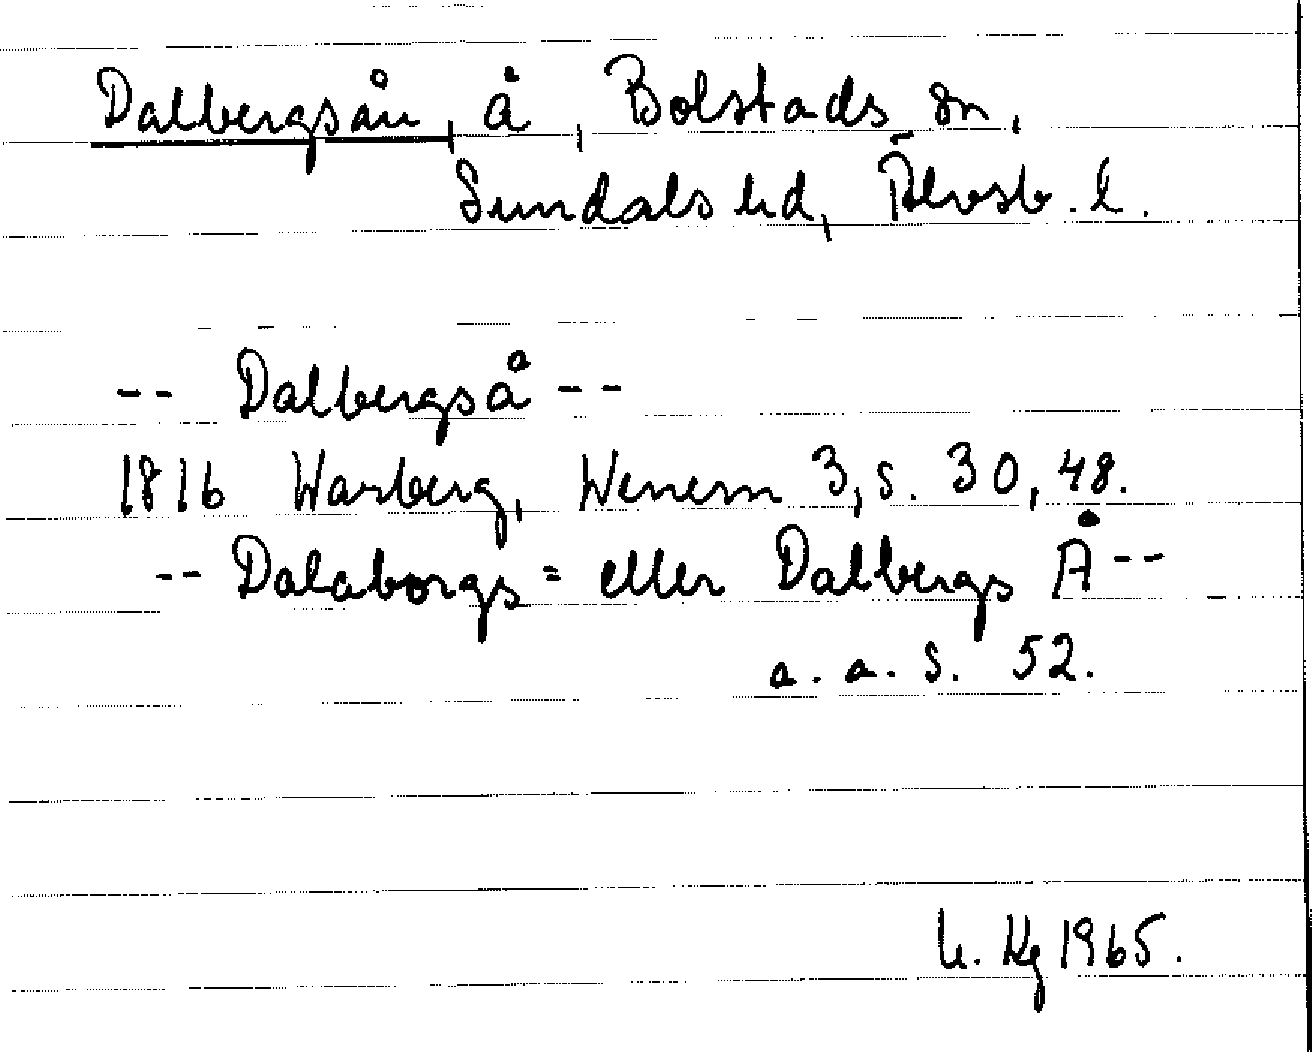 Dalbergsån, å, Bolstads sn,
Sundals hd, Älvsb. l.
-- Dalbergså --
1816 Warberg, Wenern 3, s. 30, 48.
-- Dalaborgs= eller Dalbergs Å --
a. a. s. 52.
1965.